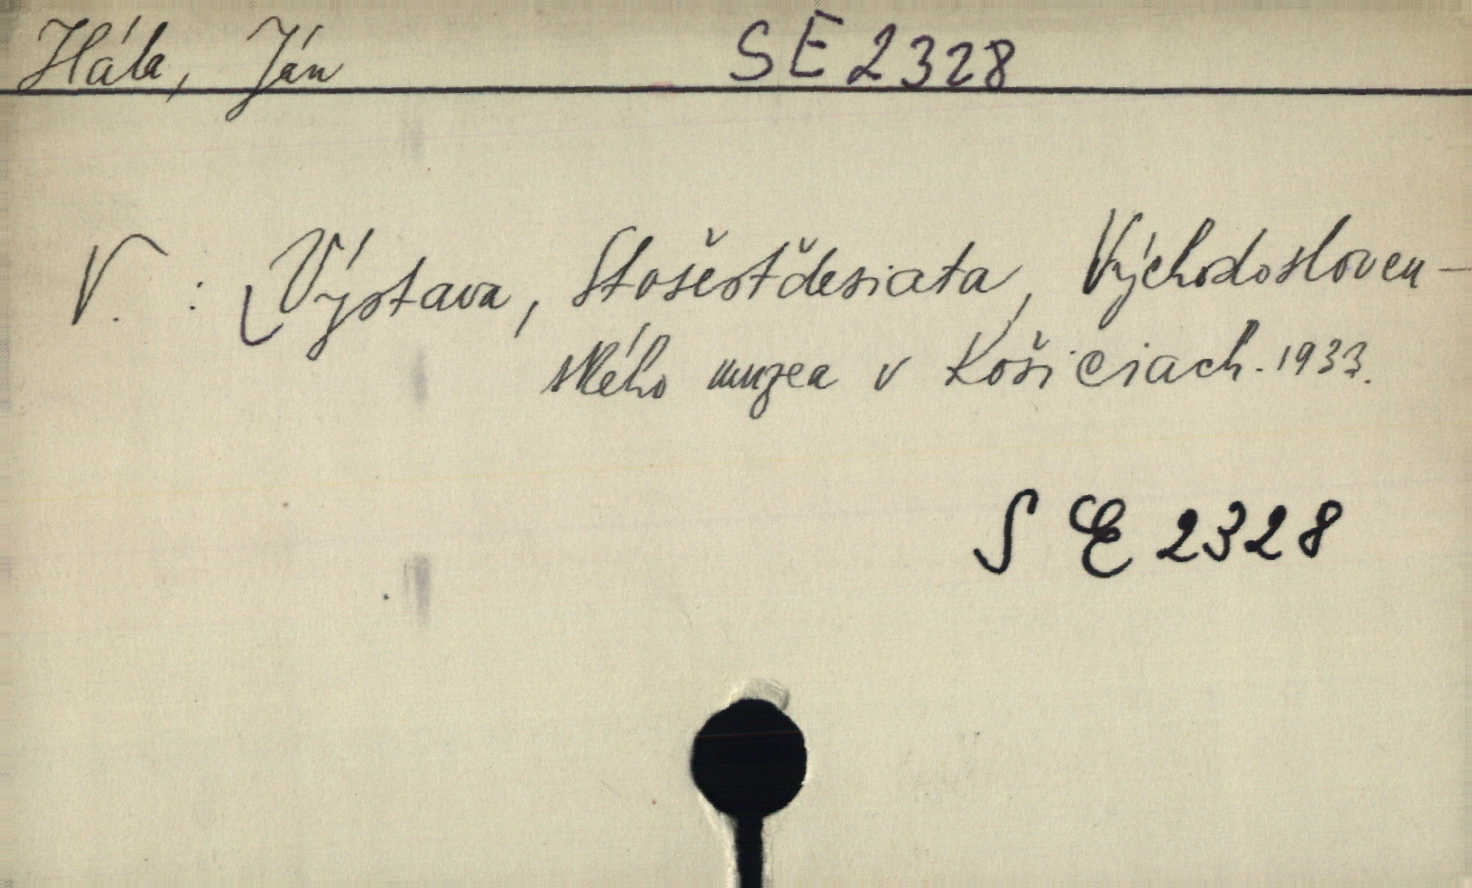 Hála, Ján SE 2328
V. : Výstava, Stošesťdesiata, Východosloven-
ského muzea v Košiciach. 1933.
SE 2328